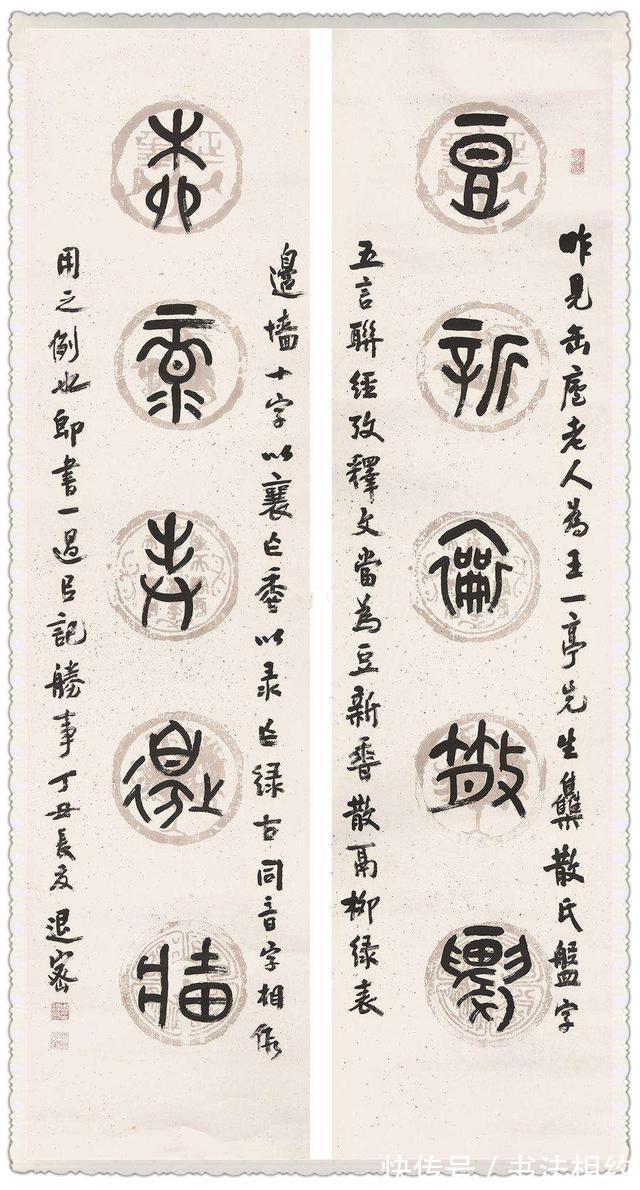 豆新
散鬲
昨見缶廬老人為王一亭先生集散氏盤字
五言聯經攷釋文當為豆新香散鬲柳綠表
柳彔表邊墻
邊墻十字以襄乍香以彔乍綠古同音字相假
用之例也即書一過㠯記勝事丁丑長夏退密
快传号/书法相约